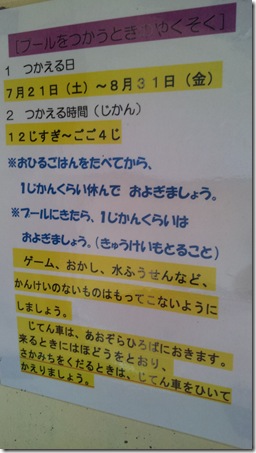 ［プールをつかうとき　やくそく］
1　つかえる日
７月２１日（土）～８月３１日（金）
2　つかえる時間（じかん）
１２じすぎ～ごご４じ
※おひるごはんをたべてから、
１じかんくらい休んで　およぎましょう。
※プールにきたら、１じかんくらいは
およぎましょう。（きゅうけいもとること）
ゲーム、おかし、水ふうせんなど、
かんけいのないものはもってこないように
しましょう。
じてん車は、あおぞらひろばにおきます。
来るときにはほどうをとおり、
さかみちをくだるときは、じてん車をひいて
かえりましょう。